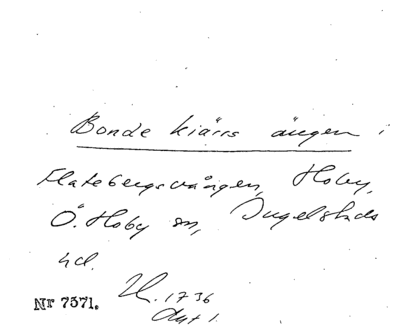 Bonde kiärrs ängen i
Flatebergsvången, Hoby,
Ö. Hoby sn, Ingelstads
hd.
Nr 7571. LK. 1736
Akt 1.